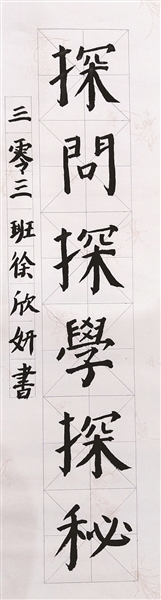 探問探學探秘
三零三班徐欣妍書